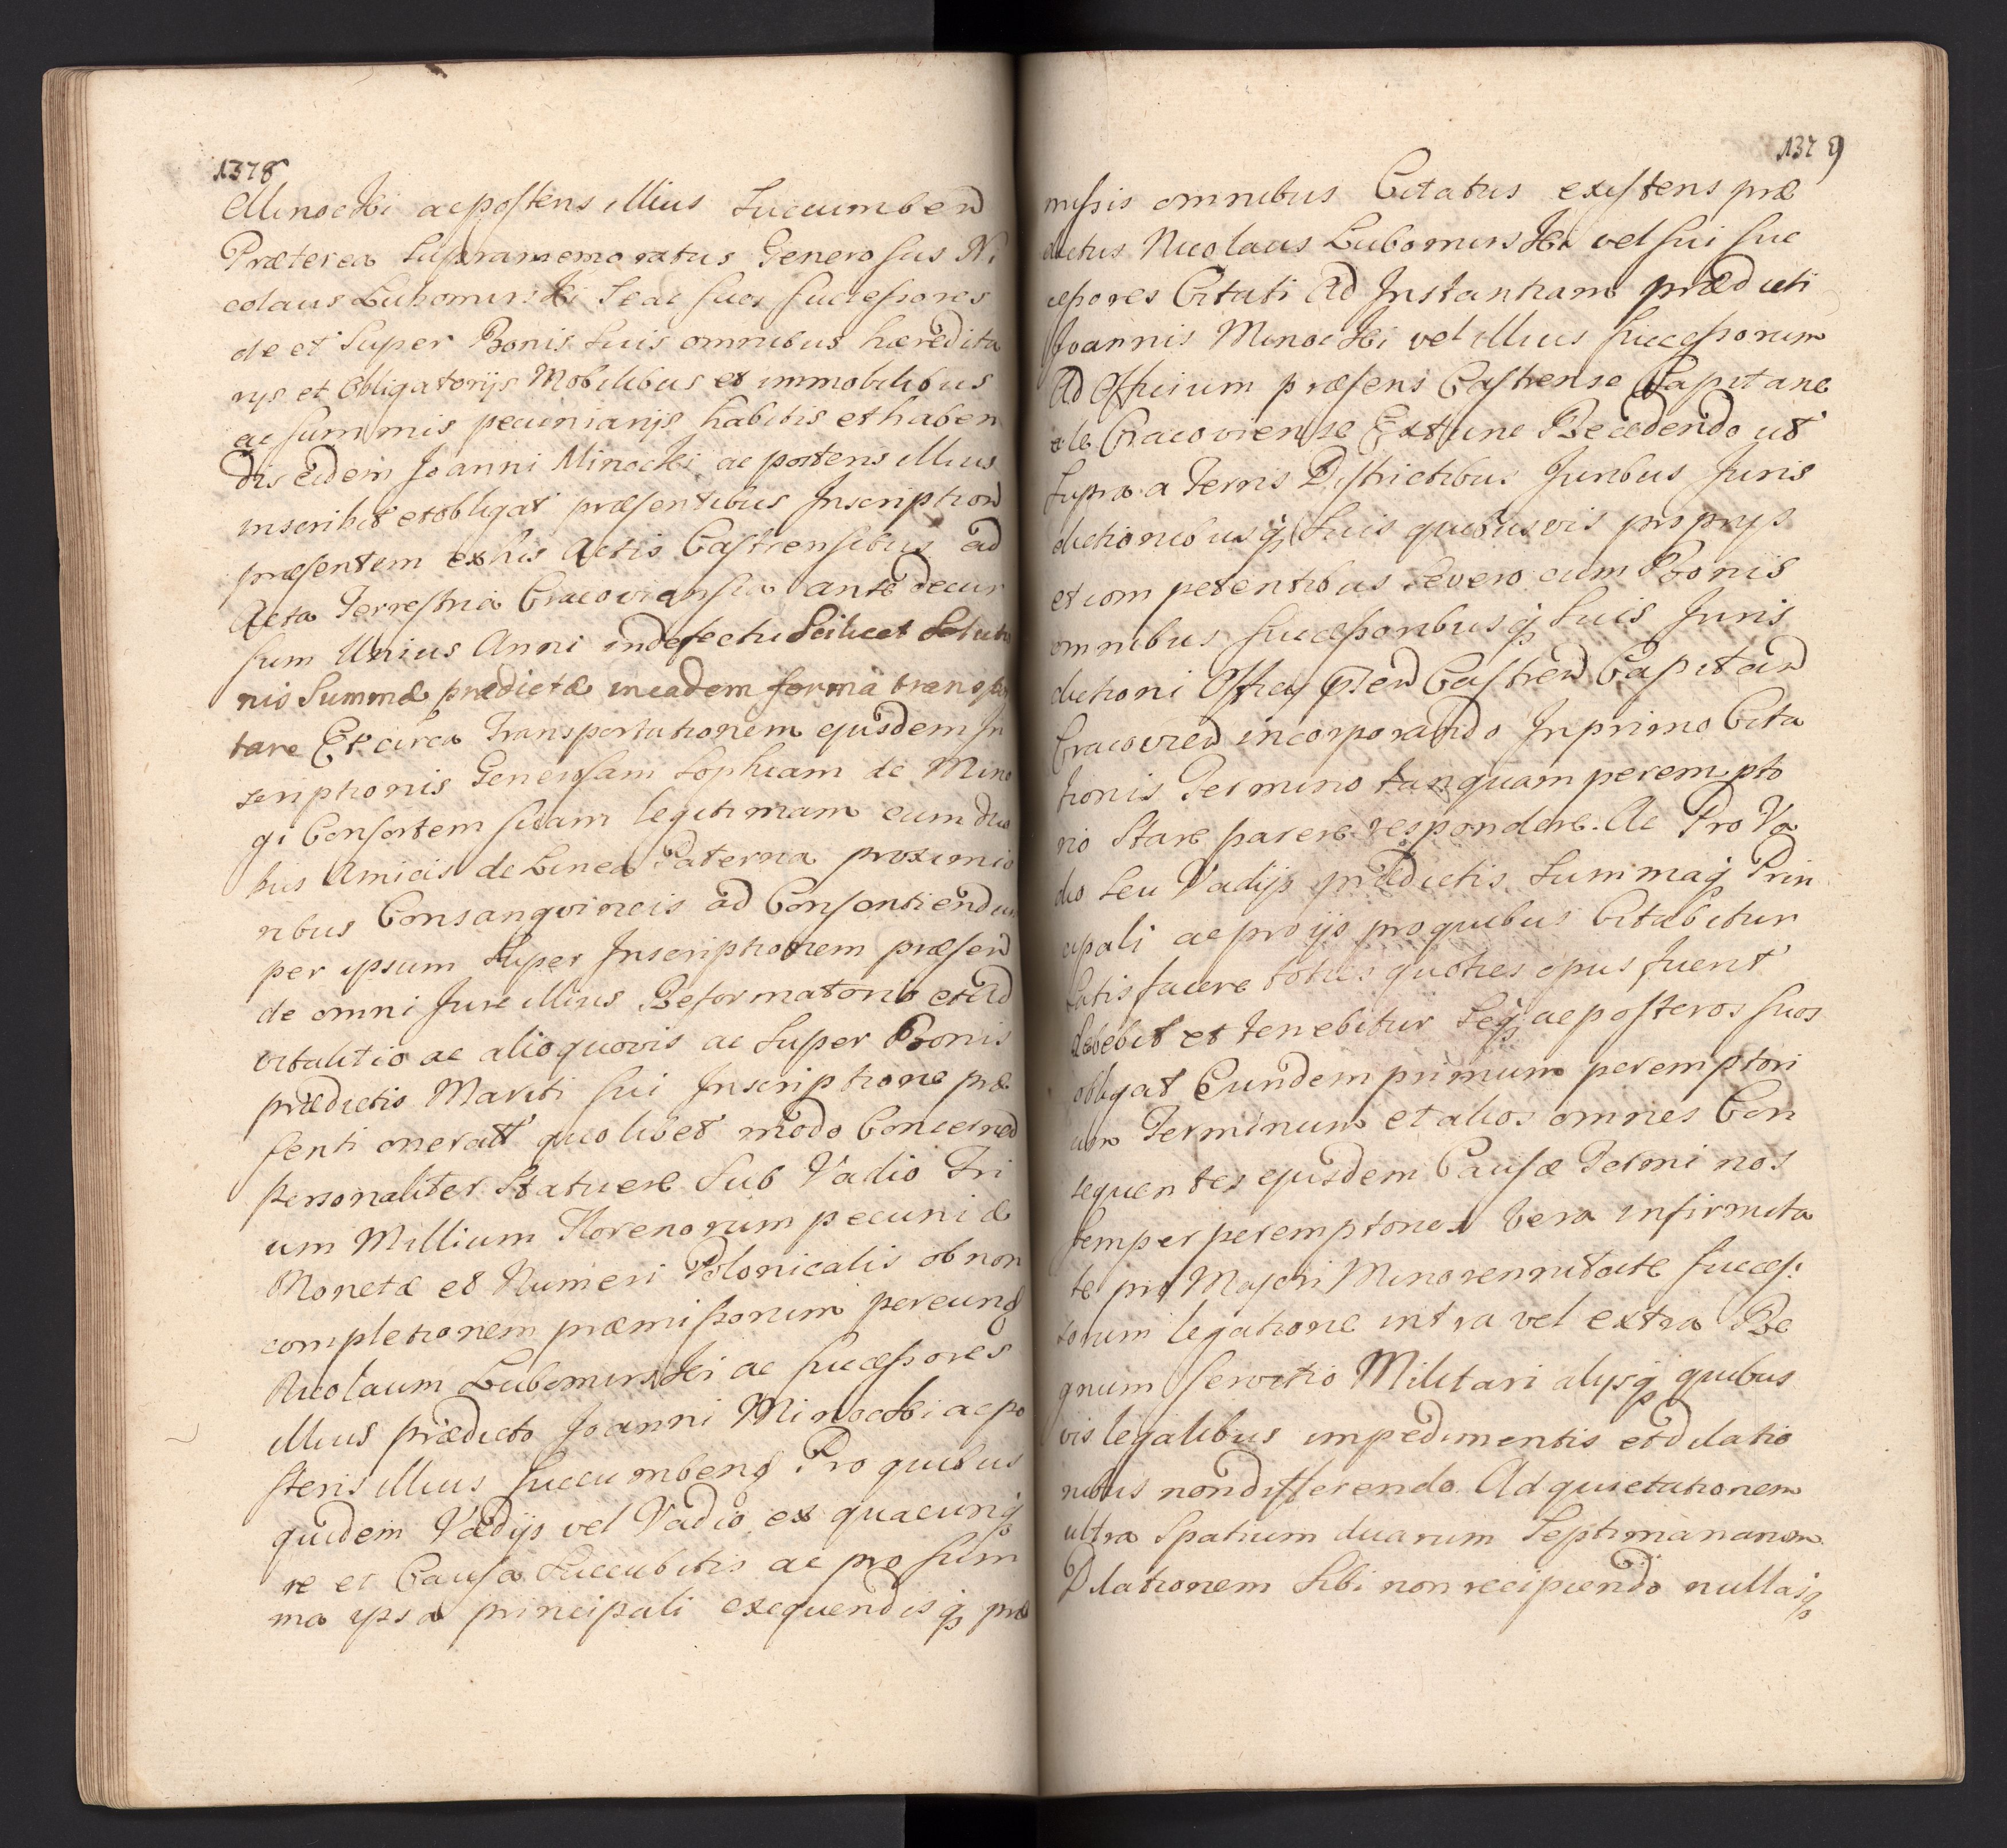 1378
Minocki ac posteris illius Succumbend
Præterea Supramemoratus Generosus Ni
colaus Lubomirski Se ac suos successores
de et Super Bonis Suis omnibus hæredita
rijs et Obligatorijs Mobilibus et immobilibus
ac summis pecuniarijs habitis et haben
dis eidem Joanni Minocki ac posteris illius
inscribit et obligat præsentibus Inscription
præsentem ex his Actis Castrensibus ad
Acta Terrestria Cracoviensia ante decur
sum Unius Anni in defectu Scilicet Solutio
nis Summæ prædictæ in eadem forma transpor
tare Et circa Transportationem ejusdem In
scriptionis Generosam Sophiam de Mino
gi Consortem suam legitimam cum duo
bus Amicis de Linea Paterna proximio
ribus Consangvineis ad Consentiendum
per ipsum Super Inscriptionem præsen
de omni Jure illius Reformatorio et Ad
vitalitio ac alio quovis ac Super Bonis
prædictis Mariti sui Inscriptione præ
senti oneratt quolibet modo Concernen
personaliter Statuere Sub Vadio Tri
um Millium Florenorum pecuniæ
Monetæ et Numeri Polonicalis ob non
completionem præmissorum per eund
Nicolaum Lubomirski ac successores
illius prædicto Joanni Minocki ac po
steris illius succumbend Pro quibus
quidem Vadijs vel Vadio ex quacunq
re et Causa Succubitis ac pro sum
ma ipsa principali exequendisq præ
1379
missis omnibus Citatus existens præ
dictus Nicolaus Lubomirski vel sui suc
cessores Citati Ad Instantiam prædicti
Joannis Minocki vel illius successorum
Ad Officium præsens Castrense Capitane
ale Cracoviense Extunc Recedendo ut
supra a Terris Districtibus Juribus Juris
dictionibusq Suis quibusvis proprijs
et competentibus Severo cum Bonis
omnibus successoribusq Suis Juris
dictioni Officij Castren Capitan
Cracovien incorporando In primo Cita
tionis Termino tanquam perempto
rio Stare parere respondere. Ac Pro Va
dio Seu Vadijs prædictis Summaq Prin
cipali ac pro ijs pro quibus Citabitur
Satisfacere toties quoties opus fuerit
debebit et tenebitur Seq ac posteros suos
obligat Eundem primum peremptori
um Terminum et alios omnes Con
sequentes ejusdem Causæ Terminos
semper peremptorios Vera infirmita
te pro Majori Minorennitate success
sorum legatione intra vel extra Re
gnum servitio Militari alijsq quibus
vis legalibus impedimentis et dilatio
nibus non differendo Ad quietationem
ultra Spatium duarum Septimanarum
Dilationem Sibi non recipiendo nullasq